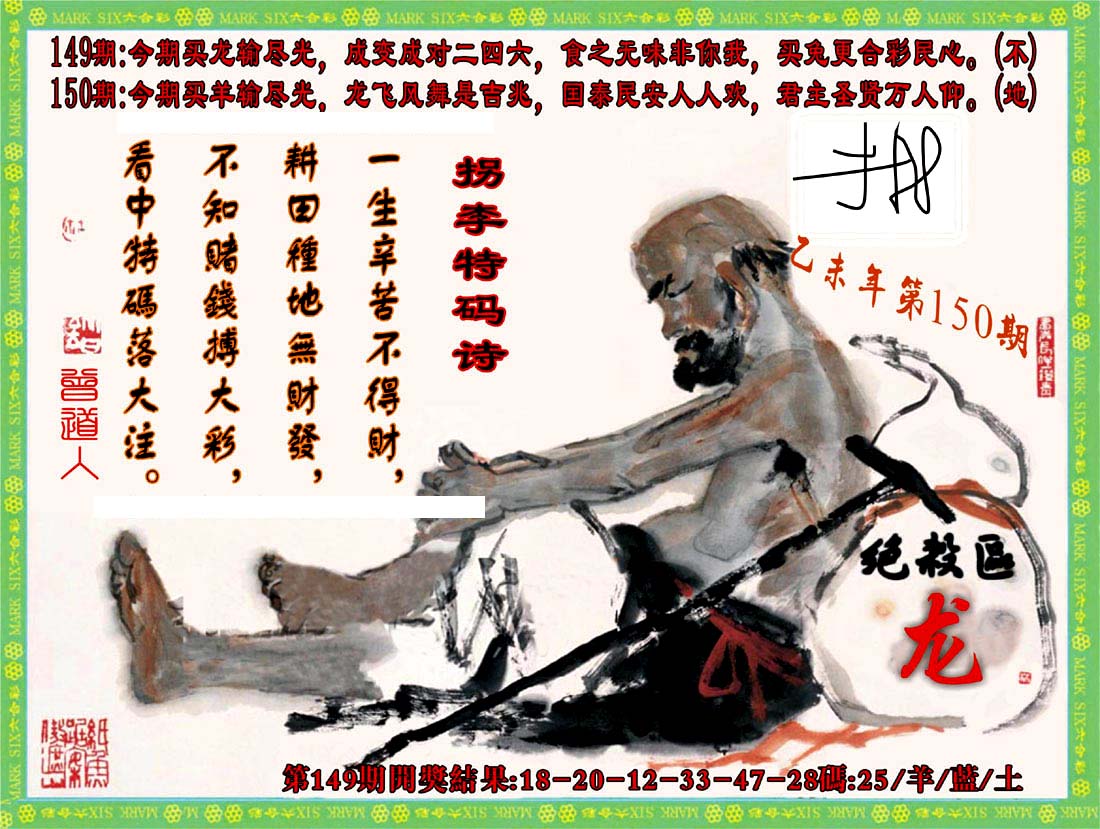 MARK SIX六合彩
149期:今期买龙输尽光，成变成对二四六，食之无味非你我，买兔更合彩民心。(不)
150期:今期买羊输尽光．龙飞风舞是吉兆，国泰民安人人欢，君主圣贤万人仰。(地)
拐李特码诗
一生辛苦不得財，
耕田種地無財發，
不知賭錢搏大彩，
看中特碼落大注。
曾道人
乙未年第150期
绝殺區
龙
第149期開獎結果:18-20-12-33-47-28碼:25/羊/藍/土